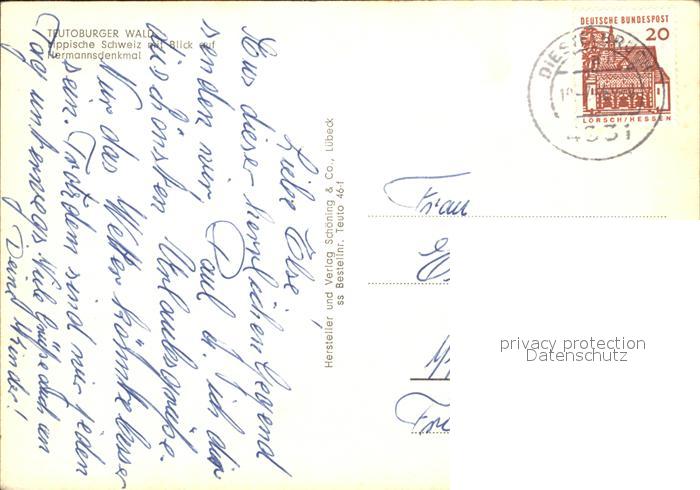 TEUTOBURGER WALD
Lippische Schweiz mit Blick auf
Hermannsdenkmal
Liebe Else,
Aus dieser herrlichen Gegend
senden wir, Paul u. ich dir
die schönsten Urlaubsgrüße.
Nur das Wetter könnte besser
sein. Trotzdem sind wir jeden
Tag unterwegs. Viele Grüße auch an
Deine Kinder!
Hersteller und Verlag Schöning & Co., Lübeck
ss Bestellnr. Teuto 46-f
DEUTSCHE BUNDESPOST
20
LORSCH/HESSEN
4931
Frau
privacy protection
Datenschutz